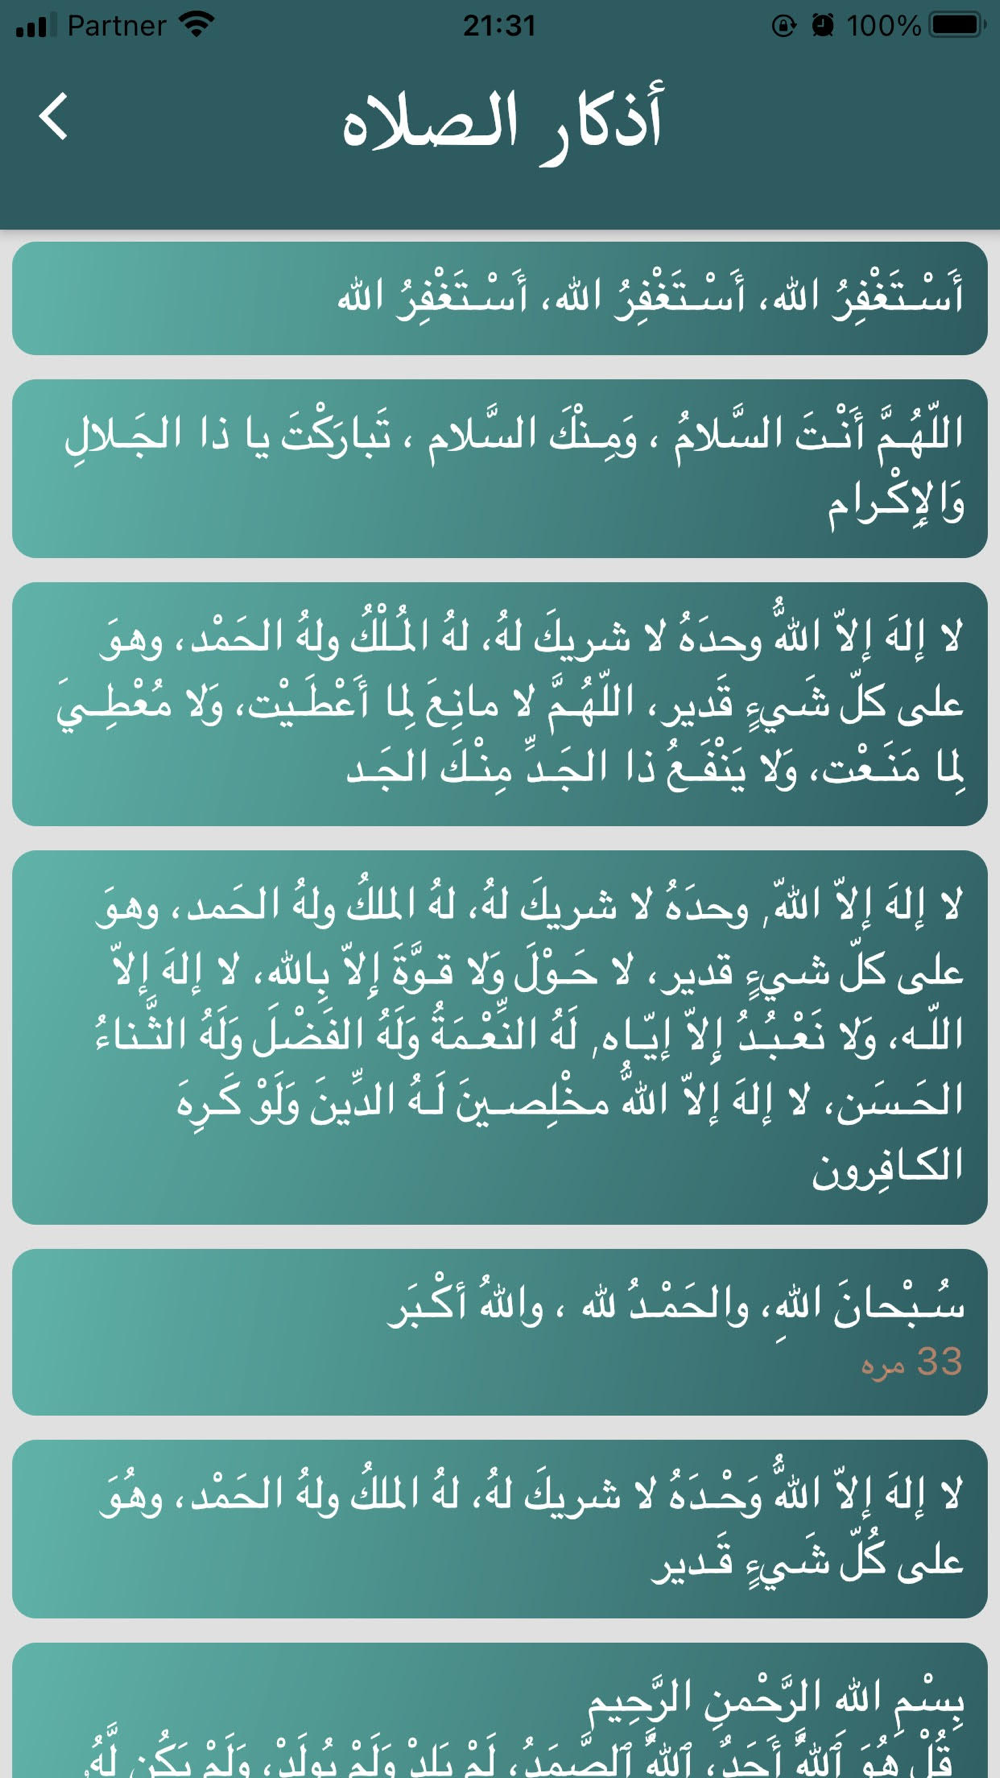 Partner 21:31 100%
أذكار الصلاه
أَسْـتَغْفِرُ الله، أَسْـتَغْفِرُ الله، أَسْـتَغْفِرُ الله
اللّهُـمَّ أَنْـتَ السَّلامُ ، وَمِـنْكَ السَّلام ، تَبارَكْتَ يا ذا الجَـلالِ
وَالإِكْـرام
لا إلهَ إلاّ اللهُّ وحدَهُ لا شريكَ لهُ، لهُ المُـلْكُ ولهُ الحَمْد، وهوَ
على كلّ شَـيءٍ قَدير، اللّهُـمَّ لا مانِعَ لِما أَعْطَـيْت، وَلا مُعْطِـيَ
لِما مَنَـعْت، وَلا يَنْفَـعُ ذا الجَـدِّ مِنْـكَ الجَـد
لا إلهَ إلاّ اللهّ, وحدَهُ لا شريكَ لهُ، لهُ الملكُ ولهُ الحَمد، وهوَ
على كلّ شـيءٍ قدير، لا حَـوْلَ وَلا قـوَّةَ إِلاّ بِالله، لا إلهَ إلاّ
اللّـه، وَلا نَعْـبُـدُ إِلاّ إيّـاه, لَهُ النِّعْـمَةُ وَلَهُ الفَضْل وَلَهُ الثَّـناءُ
الحَـسَن، لا إلهَ إلاّ اللهُّ مخْلِصـينَ لَـهُ الدِّينَ وَلَوْ كَـرِهَ
الكـافِرون
سُـبْحانَ اللهِ، والحَمْـدُ لله ، واللهُ أكْـبَر
33 مره
لا إلهَ إلاّ اللهُّ وَحْـدَهُ لا شريكَ لهُ، لهُ الملكُ ولهُ الحَمْد، وهُوَ
على كُلّ شَـيءٍ قَـدير
بِسْمِ اللهِ الرَّحْمنِ الرَّحِيم
قُلْ هُوَ ٱللَّهُ أَحَدٌ، ٱللَّهُ ٱلصَّمَدُ، لَمْ يَلِدْ وَلَمْ يُولَدْ، وَلَمْ يَكُن لَّهُۥ